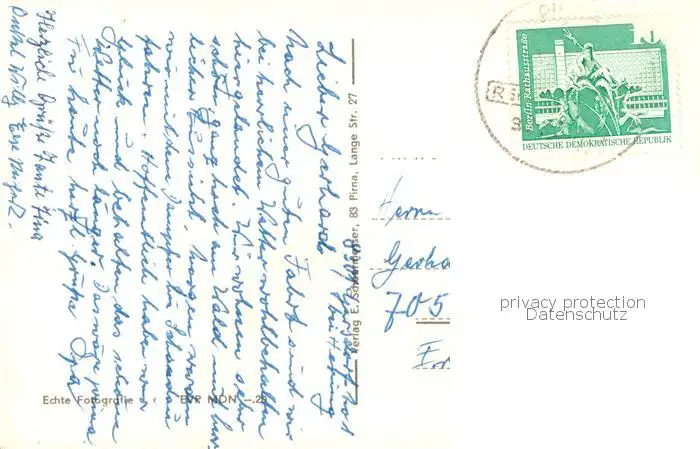 Lieber Gerhard!
Nach einer guten Fahrt sind wir
bei herrlichem Wetter wohlbehalten
hier gelandet. Wir wohnen sehr
schön, ganz hoch am Wald mit herr
licher Aussicht. Morgen wollen
wir mit dem Dampfer n. Schandau
fahren. Hoffentlich haben wir
Glück und behalten das schöne
Wetter noch länger. Das wäre prima.
Für heute herzl. Grüße Opa
Herzliche Grüße Tante Tina
Onkel Willy
Verlag E. 83 Pirna, Lange Str. 27
Echte Fotografie EVP MDN -.20
Berlin-Rathausstraße
DEUTSCHE DEMOKRATISCHE REPUBLIK
Herrn
Gerha
705
privacy protection
Datenschutz